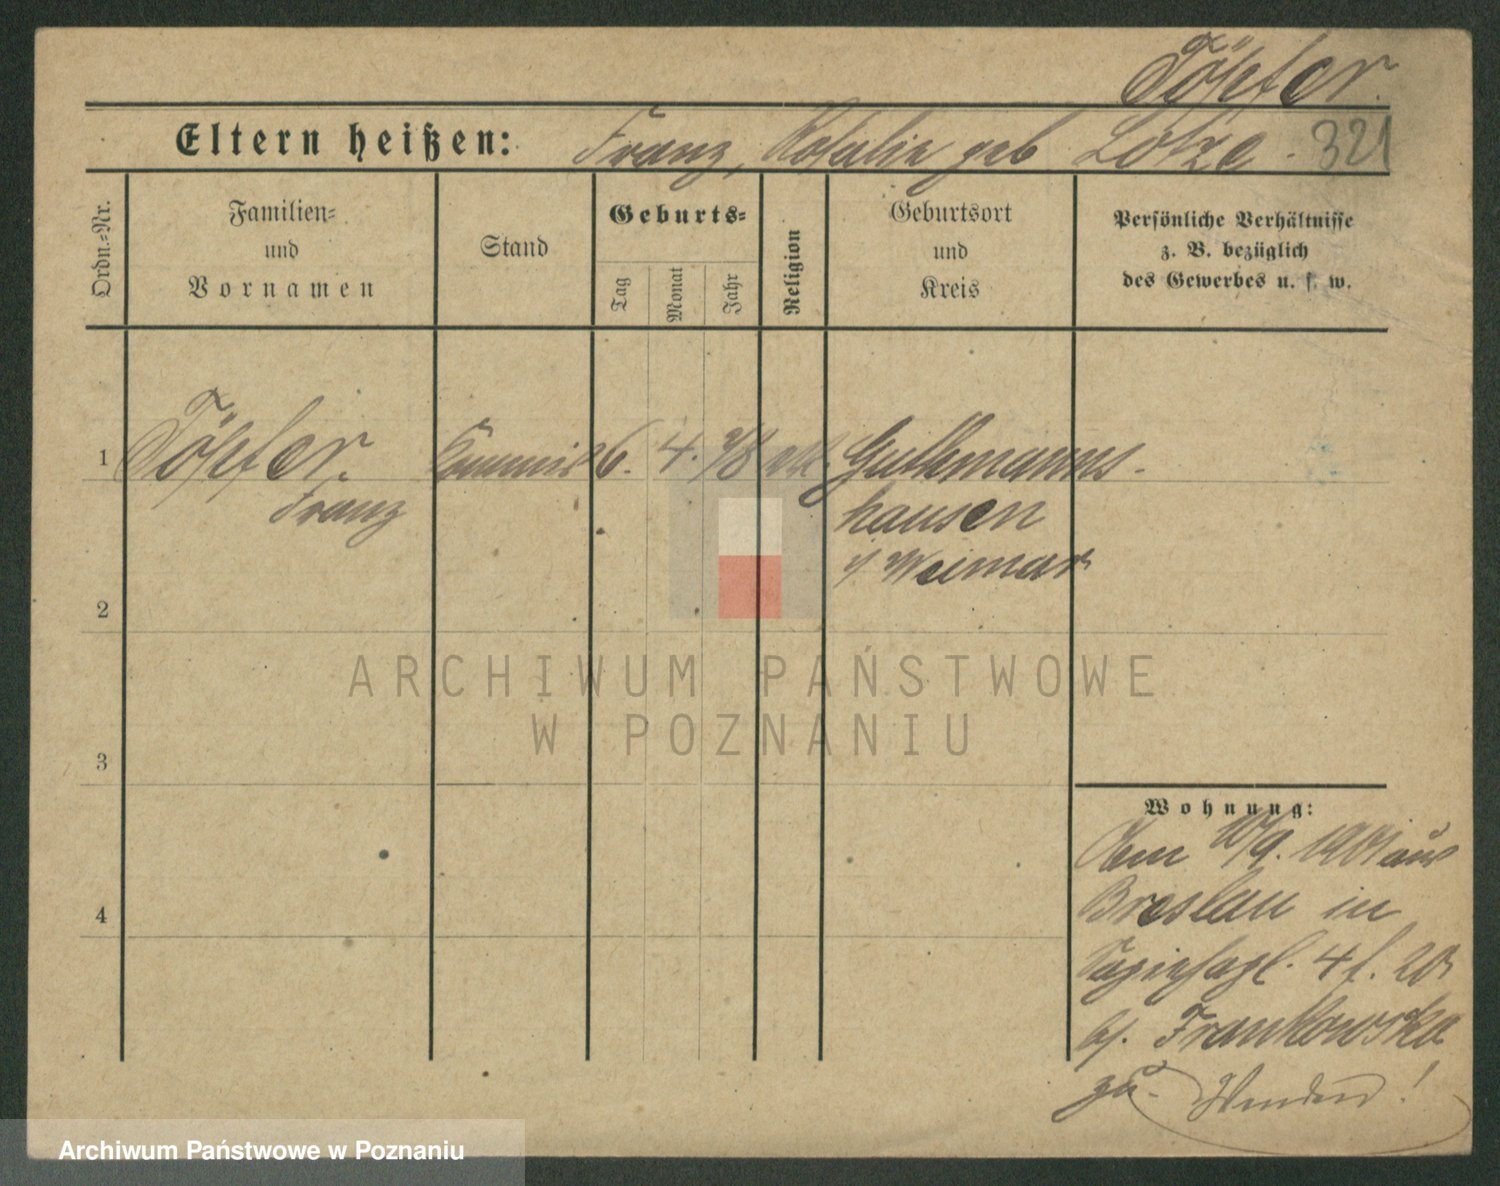 Töpfer.
Eltern heißen: Franz, Rosalie geb Lotze. 321
Ordn.-Nr.
Familien-
und
Vornamen
Stand
Geburts-
Tag
Monat
Jahr
Religion
Geburtsort
und
Kreis
Persönliche Verhältnisse
z. B. bezüglich
des Gewerbes u. s. w.
1 Töpfer. Commis 6. 4. Guthmanns-
Franz hausen
Weimar
2
3
4
Wohnung:
Am 10/9. 1901 aus
Breslau in
4
Frankowska
zu. Wenden!
ARCHIWUM PAŃSTWOWE
W POZNANIU
Archiwum Państwowe w Poznaniu